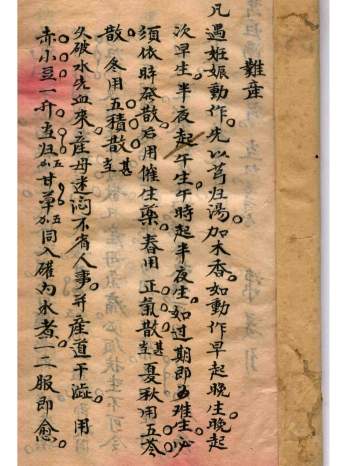 難產
凡遇妊娠動作。先以芎归湯加木香。如動作早起晚生晚起
次早生。半夜起午生。午時起半夜生。如过期即為难生。必
須依時發散。后用催生藥。春用正氣散。夏秋用五苓
散。冬用五積散。
久破水先血來。產母迷悶不省人事。并產道干澁。用
赤小豆一升。当归五分。甘草五分。同入礶內水煮。一二服即愈。